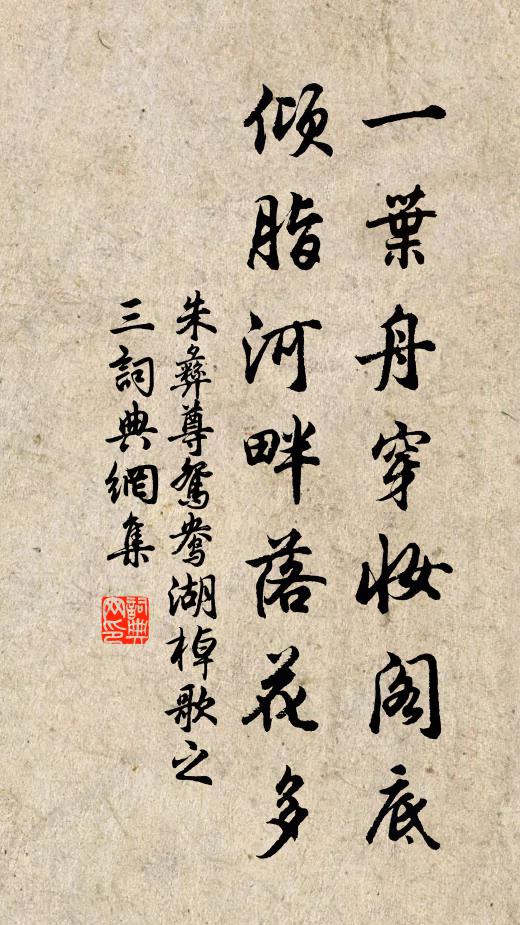 一葉舟穿妝阁底
傾脂河畔落花多
朱彝尊鴛鴦湖棹歌之
三詞典網集
詞典网印